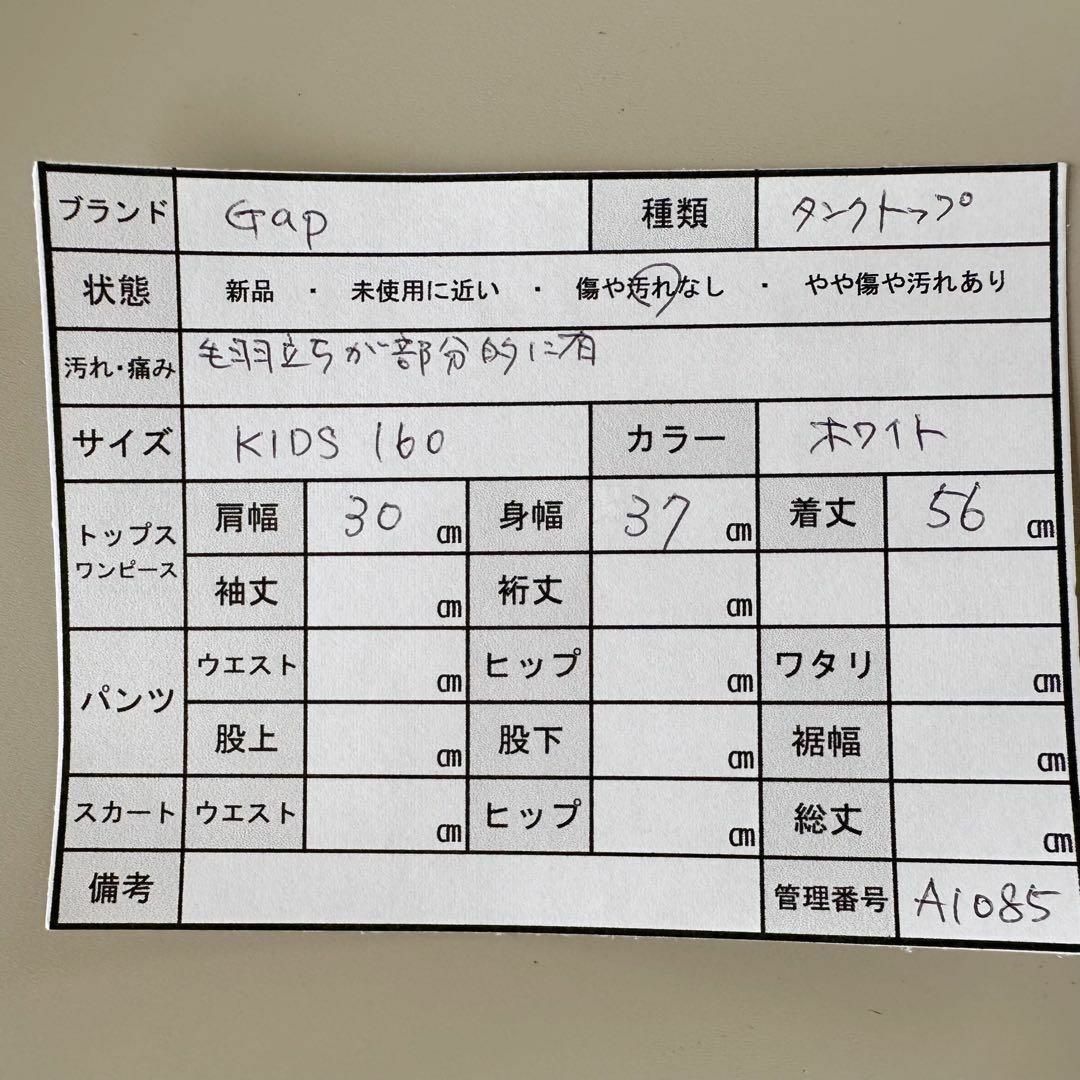 ブランド Gap 種類 タンクトップ
状態 新品 ・ 未使用に近い ・ 傷や汚れなし ・ やや傷や汚れあり
汚れ・痛み 毛羽立ちが部分的に有
サイズ KIDS 160 カラー ホワイト
トップス ワンピース 肩幅 30 ㎝ 身幅 37 ㎝ 着丈 56 ㎝
袖丈 ㎝ 裄丈 ㎝
パンツ ウエスト ㎝ ヒップ ㎝ ワタリ ㎝
股上 ㎝ 股下 ㎝ 裾幅 ㎝
スカート ウエスト ㎝ ヒップ ㎝ 総丈 ㎝
備考 管理番号 A1085